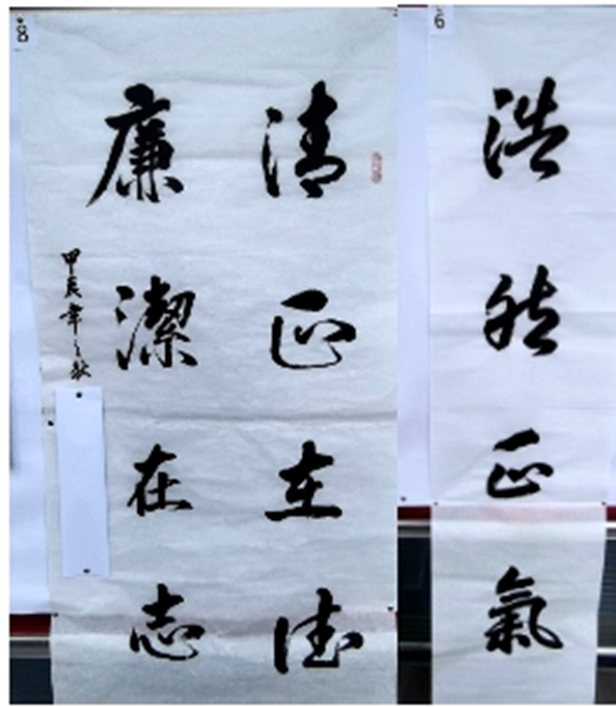 8
清正在德
廉潔在志
甲辰年之秋
6
浩然正氣